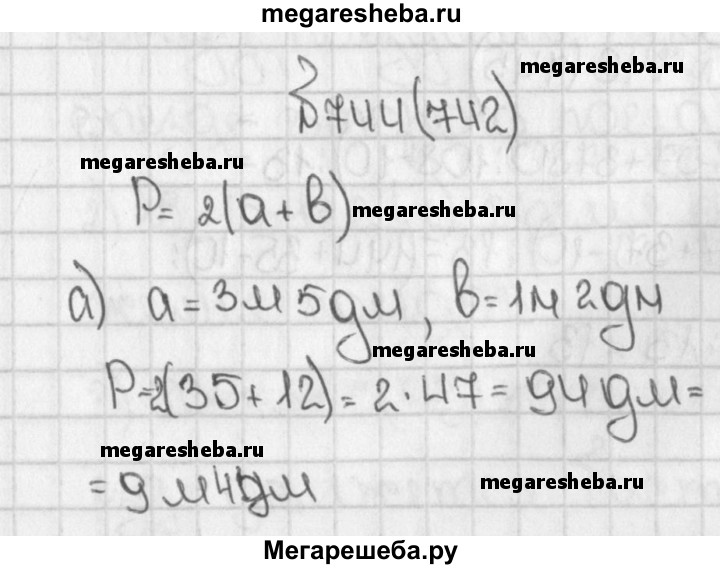 megaresheba.ru
megaresheba.ru
№744(742)
megaresheba.ru
P= 2(a+b)
megaresheba.ru
а) a=3м 5дм, b=1м 2дм
megaresheba.ru
P=2(35+12)=2·47=94дм=
megaresheba.ru
=9м4дм
megaresheba.ru
Мегарешеба.ру